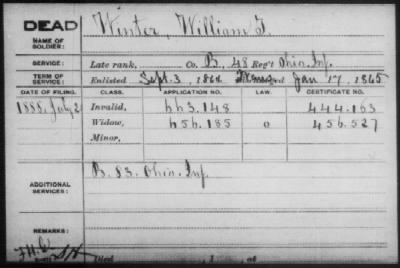 DEAD Winter, William F.
NAME OF SOLDIER:
SERVICE: Late rank, Co. B, 48 Reg't Ohio Inf.
TERM OF SERVICE: Enlisted Sept. 3, 1864 Jan 17, 1865
DATE OF FILING. CLASS. APPLICATION NO. LAW. CERTIFICATE NO.
1888, July 2 Invalid, 663.148 444.163
Widow, 656.185 0 456.527
Minor,
ADDITIONAL SERVICES: B. 83. Ohio. Inf.
REMARKS:
Died , 1 , at